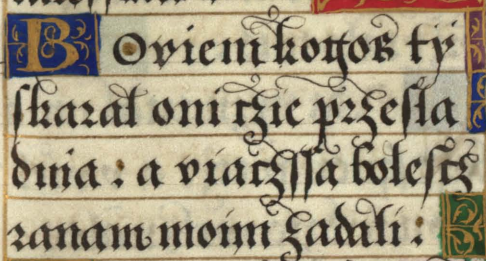 Boviem kogos ty
skarał oni czie przesla
dnia : a viaczssa bolescz
ranam moim zadali :